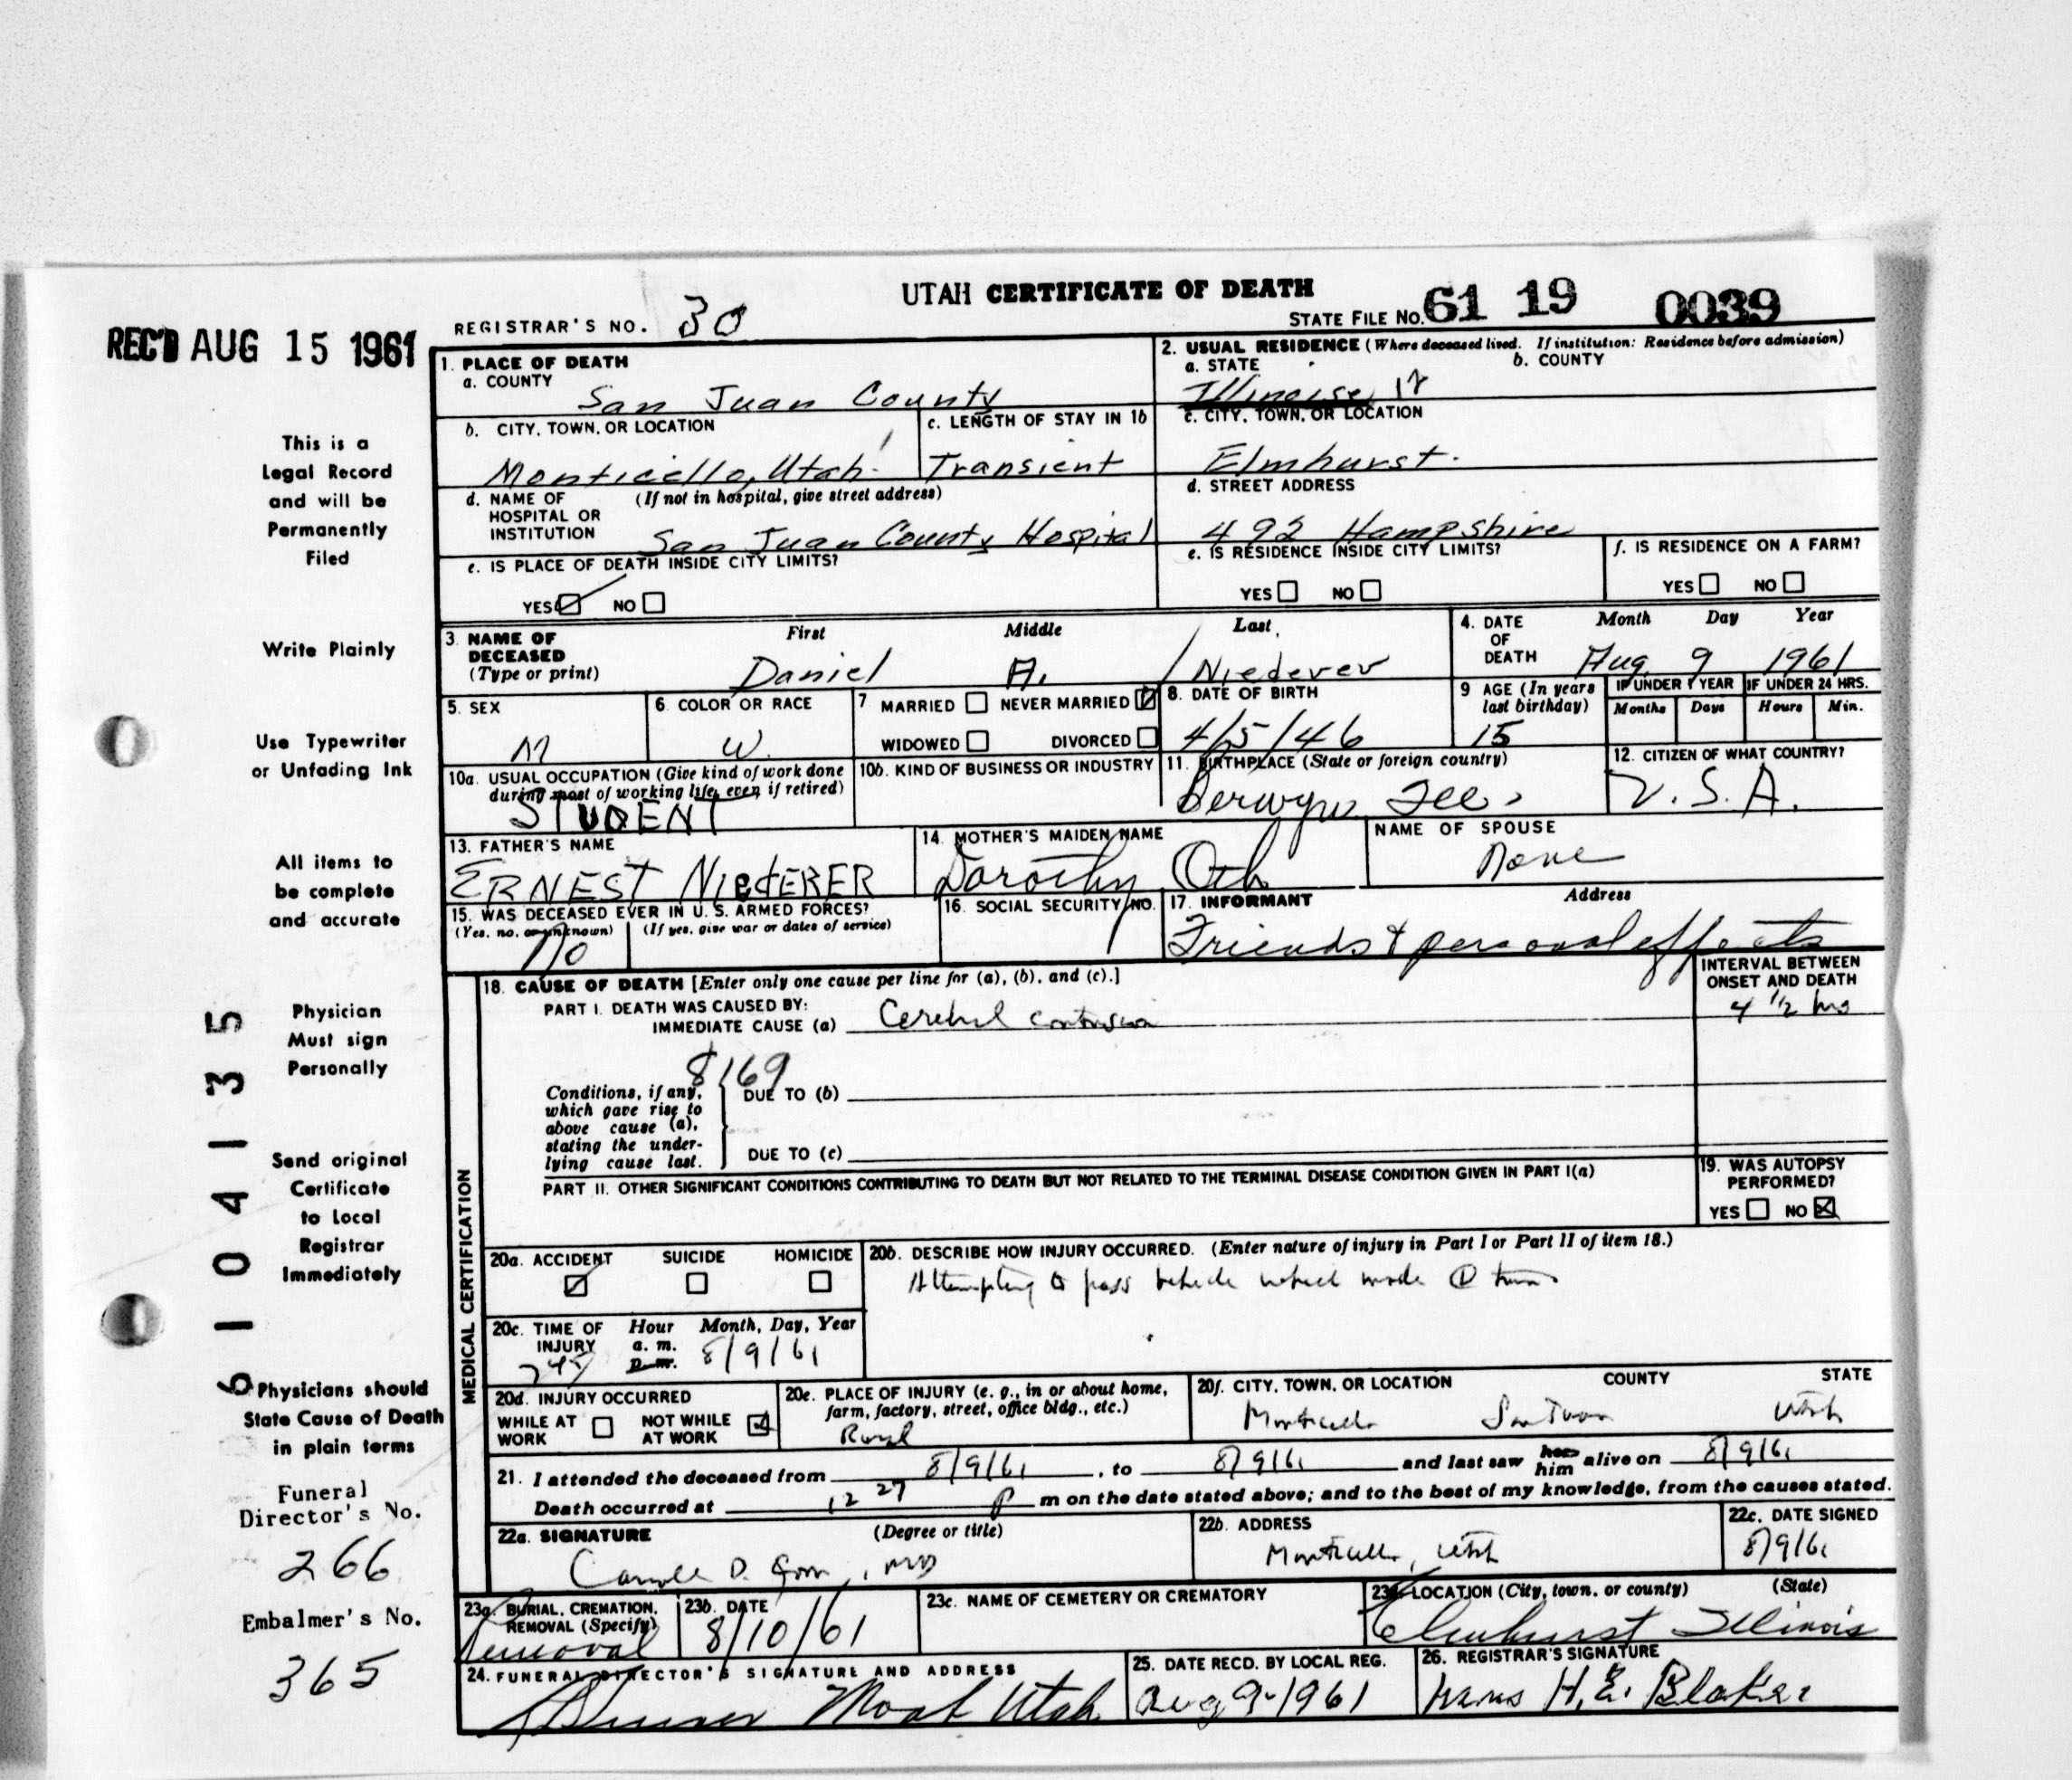 UTAH CERTIFICATE OF DEATH
REGISTRAR'S NO. 30
STATE FILE NO. 61 19 0039
REC'D AUG 15 1961
1. PLACE OF DEATH
a. COUNTY
San Juan County
2. USUAL RESIDENCE (Where deceased lived. If institution: Residence before admission)
a. STATE b. COUNTY
Illinoise
b. CITY, TOWN, OR LOCATION
Monticello, Utah.
c. LENGTH OF STAY IN 1b
Transient
c. CITY, TOWN, OR LOCATION
Elmhurst.
d. NAME OF HOSPITAL OR INSTITUTION (If not in hospital, give street address)
San Juan County Hospital
d. STREET ADDRESS
492 Hampshire
e. IS PLACE OF DEATH INSIDE CITY LIMITS?
YES NO
e. IS RESIDENCE INSIDE CITY LIMITS?
YES NO
f. IS RESIDENCE ON A FARM?
YES NO
3. NAME OF DECEASED (Type or print)
First Middle Last
Daniel A. Niederer
4. DATE OF DEATH
Month Day Year
Aug. 9 1961
5. SEX
M
6. COLOR OR RACE
W.
7. MARRIED NEVER MARRIED
WIDOWED DIVORCED
8. DATE OF BIRTH
4/5/46
9 AGE (In years last birthday)
15
IF UNDER 1 YEAR
Months Days
IF UNDER 24 HRS.
Hours Min.
10a. USUAL OCCUPATION (Give kind of work done during most of working life, even if retired)
STUDENT
10b. KIND OF BUSINESS OR INDUSTRY
11. BIRTHPLACE (State or foreign country)
Berwyn Ill.
12. CITIZEN OF WHAT COUNTRY?
U.S.A.
13. FATHER'S NAME
ERNEST NIEDERER
14. MOTHER'S MAIDEN NAME
Dorothy
NAME OF SPOUSE
None
15. WAS DECEASED EVER IN U. S. ARMED FORCES?
(Yes, no, or unknown) (If yes, give war or dates of service)
No
16. SOCIAL SECURITY NO.
17. INFORMANT Address
Friends & personal effects
18. CAUSE OF DEATH [Enter only one cause per line for (a), (b), and (c).]
PART I. DEATH WAS CAUSED BY:
IMMEDIATE CAUSE (a) Cerebral contusion
INTERVAL BETWEEN ONSET AND DEATH
4 1/2 hrs
8169
Conditions, if any, which gave rise to above cause (a), stating the underlying cause last.
DUE TO (b)
DUE TO (c)
PART II. OTHER SIGNIFICANT CONDITIONS CONTRIBUTING TO DEATH BUT NOT RELATED TO THE TERMINAL DISEASE CONDITION GIVEN IN PART I(a)
19. WAS AUTOPSY PERFORMED?
YES NO
MEDICAL CERTIFICATION
20a. ACCIDENT SUICIDE HOMICIDE
20b. DESCRIBE HOW INJURY OCCURRED. (Enter nature of injury in Part I or Part II of item 18.)
Attempting to pass vehicle which made (L) turn
20c. TIME OF INJURY
Hour Month, Day, Year
a. m. p. m.
8/9/61
20d. INJURY OCCURRED
WHILE AT WORK NOT WHILE AT WORK
20e. PLACE OF INJURY (e. g., in or about home, farm, factory, street, office bldg., etc.)
Rural
20f. CITY, TOWN, OR LOCATION COUNTY STATE
Monticello San Juan Utah
21. I attended the deceased from 8/9/61, to 8/9/61 and last saw her him alive on 8/9/61
Death occurred at 12 27 P m on the date stated above; and to the best of my knowledge, from the causes stated.
22a. SIGNATURE (Degree or title)
D. MD
22b. ADDRESS
Monticello, Utah
22c. DATE SIGNED
8/9/61
23a. BURIAL, CREMATION, REMOVAL (Specify)
Removal
23b. DATE
8/10/61
23c. NAME OF CEMETERY OR CREMATORY
23d. LOCATION (City, town, or county) (State)
Elmhurst Illinois
24. FUNERAL DIRECTOR'S SIGNATURE AND ADDRESS
Moab Utah
25. DATE RECD. BY LOCAL REG.
Aug 9-1961
26. REGISTRAR'S SIGNATURE
H.E. Blake
This is a
Legal Record
and will be
Permanently
Filed
Write Plainly
Use Typewriter
or Unfading Ink
All items to
be complete
and accurate
Physician
Must sign
Personally
Send original
Certificate
to Local
Registrar
Immediately
Physicians should
State Cause of Death
in plain terms
Funeral
Director's No.
266
Embalmer's No.
365
61 04135